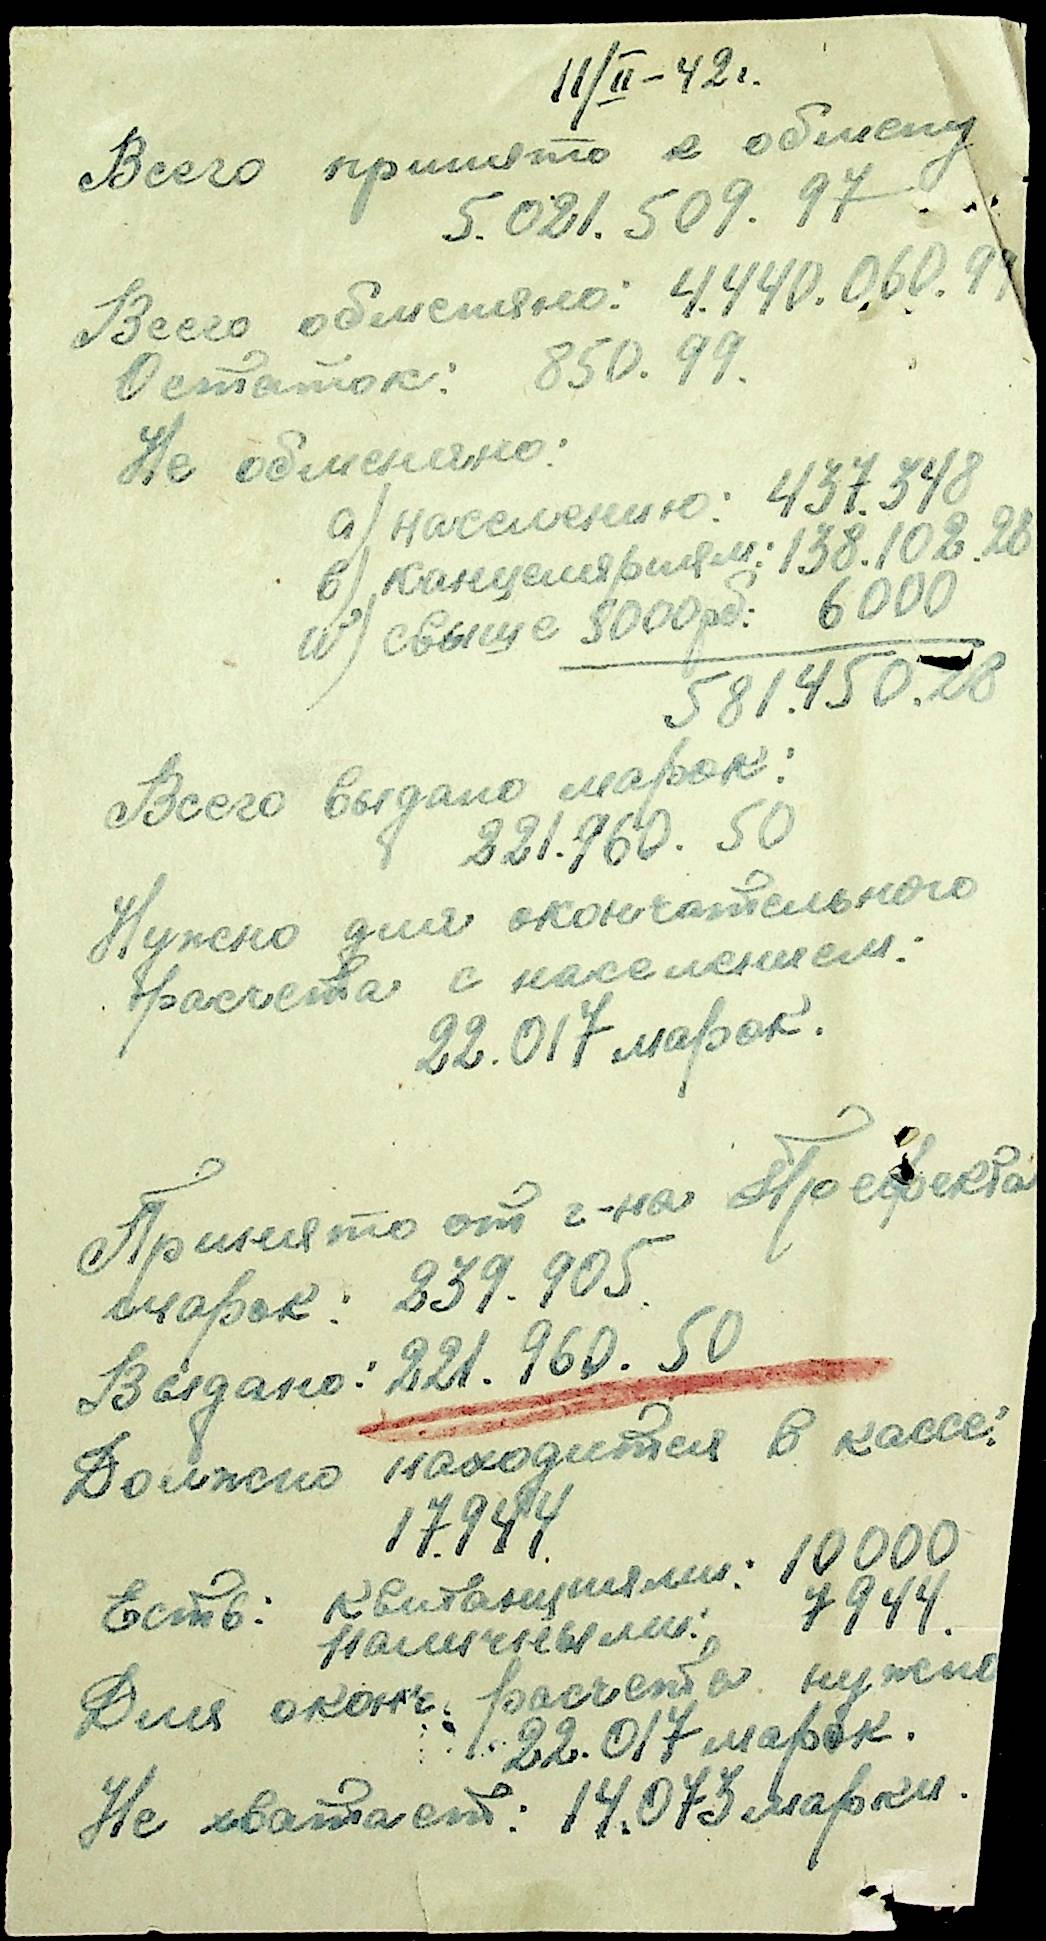 11/II-42 г.
Всего принято к обмену
5.021.509.97
Всего обменяно: 4.440.060.99
Остаток: 850.99.
Не обменяно:
а) населению: 437.348
в) канцеляриям: 138.102.28
ш) свыше 3000 рб: 6000
581.450.28
Всего выдано марок:
221.960. 50
Нужно для окончательного
расчета с населением:
22.017 марок.
Принято от г-на Префекта
марок: 239.905.
Выдано: 221.960. 50
Должно находится в кассе:
17.944.
Есть: квитанциями: 10000
наличными: 7944.
Для оконч. расчета нужно
22.017 марок.
Не хватает: 14.073 марки.